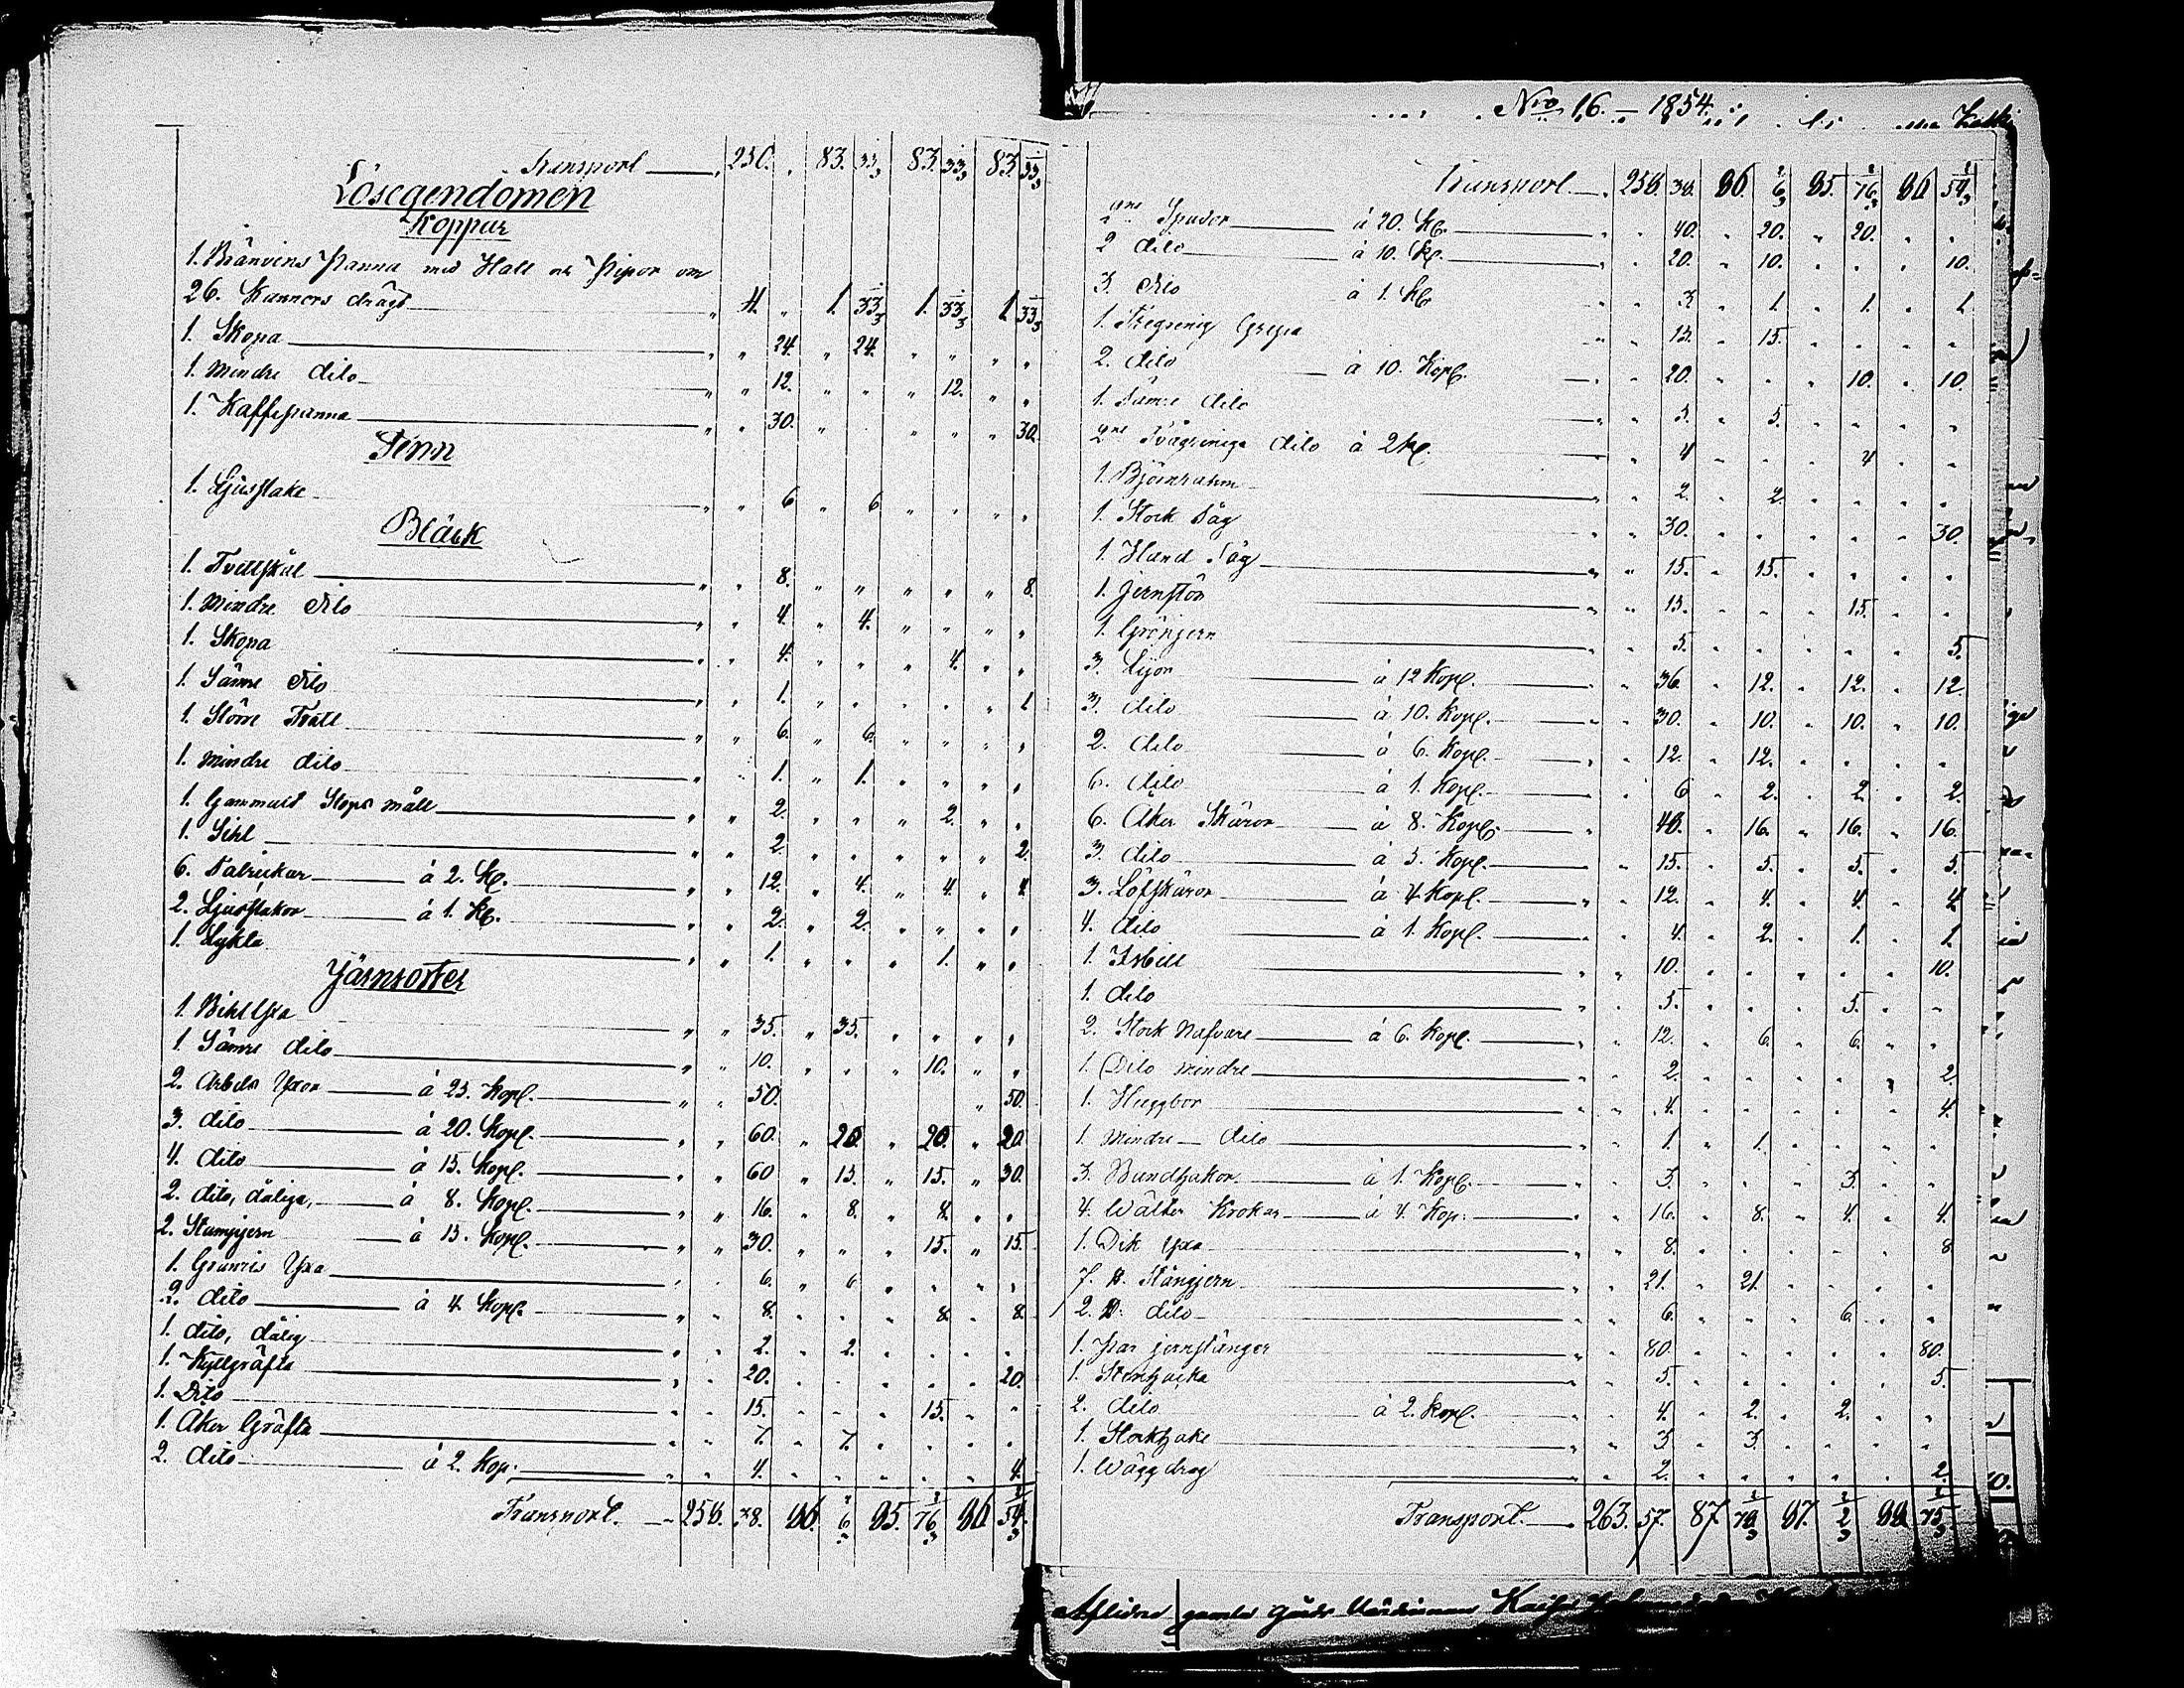 Transport 250. " 83. 33 1/3 83. 33 1/3 83. 33 1/3
Lösegendomen
Koppar
1. Bränvins Panna med Hatt och Pipor om
26. Kannors drägt " 4. " 1. 33 1/3 1. 33 1/3 1. 33 1/3
1. Skopa " " 24. " 24. " " " "
1. Mindre dito " " 12. " " " 12. " "
1. Kaffepanna " " 30. " " " " " 30.
Tenn
1. Ljusstake " " 6 " 6 " " " "
Bläck
1. Tvettskål " " 8. " " " " " 8.
1. Mindre dito " " 4. " 4. " " " "
1. Skopa " " 4. " " " 4. " "
1. Sämre dito " " 1. " " " " " 1
1. Större Tratt " " 6. " 6. " " " "
1. mindre dito " " 1. " 1. " " " "
1. Gammalt Stops mått " " 2. " " " 2. " "
1. Sihl " " 2. " " " " " 2.
6. Talrickar à 2. K. " " 12. " 4. " 4. " 4
2. Ljusstakar à 1. K. " " 2. " 2. " " " "
1. Lykta " " 1. " " " 1. " "
Järnsorter
1. Bihl Yxa " " 35. " 35. " " " "
1. Sämre dito " " 10. " " " 10. " "
2. Arbets Yxor à 25. Kop. " " 50. " 50.
3. dito à 20. Kop. " " 60. " 20. " 20. " 20.
4. dito à 15. Kop. " " 60 " 15. " 15. " 30.
2. dito, dåliga, à 8. Kop. " " 16. " 8. " 8. " "
2. Stampjern à 15. Kop. " " 30. " " " 15. " 15.
1. Granris Yxa " " 6. " 6 " " " "
2. dito à 4 Kop. " " 8. " " " 8. " 8
1. dito, dålig " " 2. " 2. " " " "
1. Kyttgräfta " " 20. " " " " " 20.
1. Dito " " 15. " " " 15. " "
1. Åker Gräfta " " 7. " 7. " " " "
2. dito à 2. Kop: " " 4. " " " " " 4.
Transport. 258. 38. 86. 6 2/3 85. 76 2/3 86 54 2/3
Nro 16. – 1854.
Transport. 258. 38. 86. 6 2/3 85. 76 2/3 86 54 2/3
2ne Spador à 20. K. " " 40. " 20. " 20. " "
2 dito à 10. K. " " 20. " 10. " " " 10.
3. dito à 1. K. " " 3. " 1. " 1. " 1
1. Tregrenig Grepa " " 15. " 15. " " " "
2. dito à 10. Kop. " " 20. " " " 10. " 10.
1. Sämre dito " " 5. " 5. " " " "
2ne Tvågreniga dito à 2 K. " " 4 " " " 4 " "
1. Björnrahm " " 2. " 2. " " " "
1. Stock Såg " " 30. " " " " " 30.
1. Hand Såg " " 15. " 15. " " " "
1. Jernstör " " 15. " " " 15. " "
1. Grönjern " " 5. " " " " " 5.
3. Lijor à 12 Kop. " " 36. " 12. " 12. " 12.
3. dito à 10. Kop. " " 30. " 10. " 10. " 10.
2. dito à 6. Kop. " " 12. " 12. " " " "
6. dito à 1. Kop. " " 6 " 2. " 2. " 2.
6. Åker Skäror à 8. Kop. " " 48. " 16. " 16. " 16.
3. dito à 5. Kop. " " 15. " 5. " 5. " 5.
3. Löfskäror à 4 Kop. " " 12. " 4. " 4. " 4
4. dito à 1. Kop. " " 4. " 2. " 1. " 1.
1. Isbill " " 10. " " " " " 10.
1. dito " " 5. " " " 5. " "
2. Stock Nafvare à 6. Kop. " " 12. " 6. " 6. " "
1. Dito mindre " " 2. " " " " " 2.
1. Huggbor " " 4. " " " " " 4.
1. Mindre dito " " 1. " 1. " " " "
3. Bandhakor à 1. Kop. " " 3. " " " 3. " "
4. Wälter Krokar à 4. Kop: " " 16. " 8. " 4. " 4.
1. Dik yxa " " 8. " " " " " 8
7. ℔. Stångjern " " 21. " 21. " " " "
2. ℔: dito " " 6. " " " 6. " "
1. par jernstänger " " 80. " " " " " 80.
1. Stenhacka " " 5. " " " " " 5.
2. dito à 2. Kop. " " 4. " 2. " 2. " "
1. Stockhake " " 3. " 3. " " " "
1. Wägg drag " " 2. " " " " " 2.
Transport. 263. 57. 87 78 2/3 87. 2 2/3 88 75 2/3
Aflidne gamla Gårds Värdinnan Kaisa